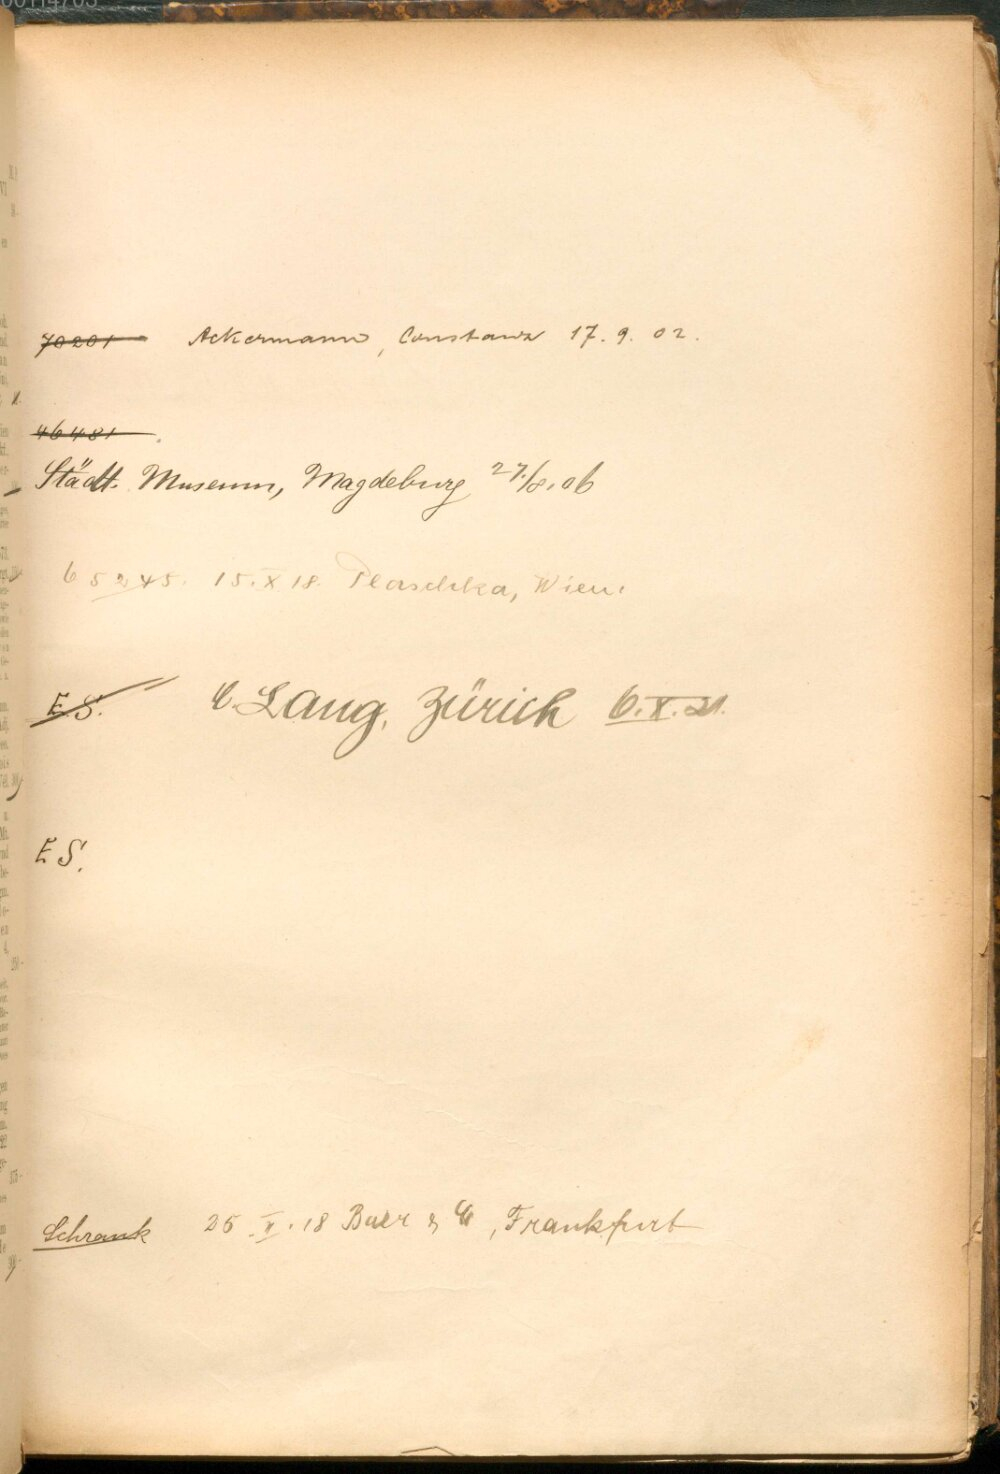 70201 Ackermann, Constanz 17. 9. 02.
46481
Städt. Museum, Magdeburg 27./8. 06
65245. 15. X 18. Plaschka, Wien.
E. S. E. Lang, Zürich 6. X. 21.
E S.
Schrank 25. V. 18 Baer & Co, Frankfurt